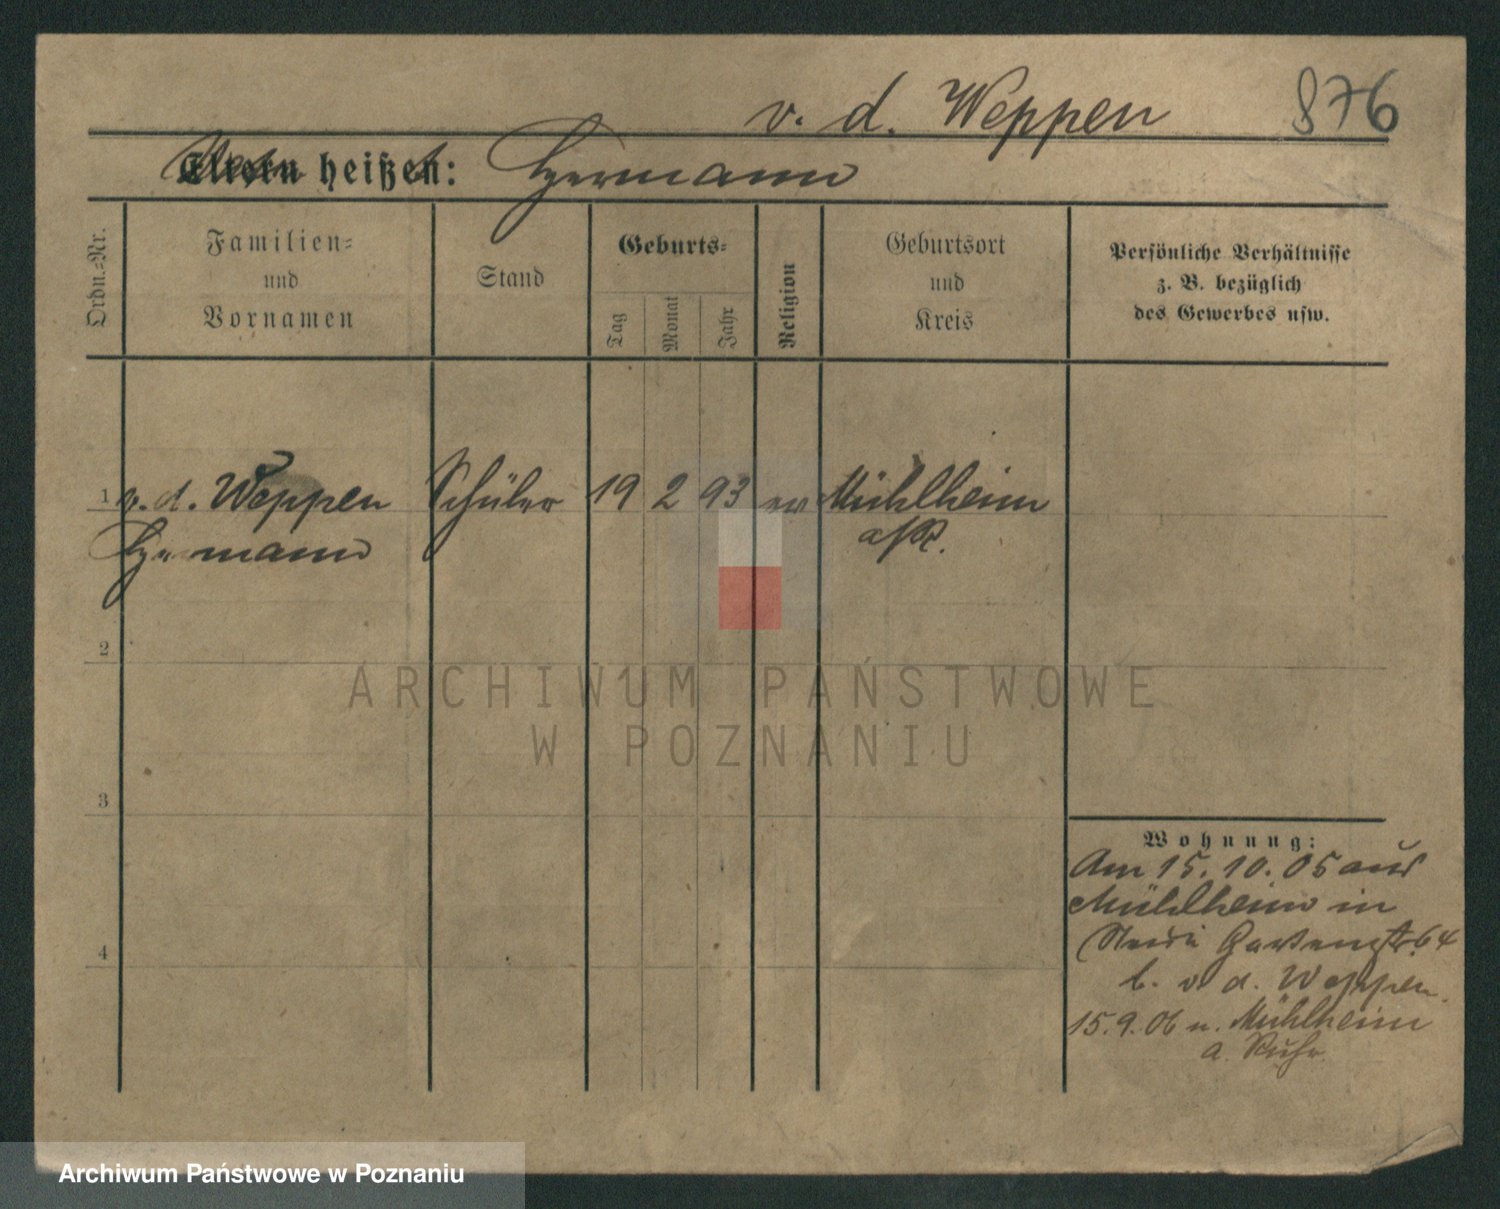 v. d. Weppen 876
Eltern heißen: Hermann
Ordn.-Nr.
Familien-
und
Vornamen
Stand
Geburts-
Tag
Monat
Jahr
Religion
Geburtsort
und
Kreis
Persönliche Verhältnisse
z. B. bezüglich
des Gewerbes usw.
1 v. d. Weppen Schüler 19 2 93 ev Mühlheim
Hermann a/R.
2
3
4
Wohnung:
Am 15. 10. 05 aus
Mühlheim in
Gartenstr. 64
b. v. d. Weppen
15. 9. 06 n. Mühlheim
a. Ruhr.
ARCHIWUM PAŃSTWOWE
W POZNANIU
Archiwum Państwowe w Poznaniu